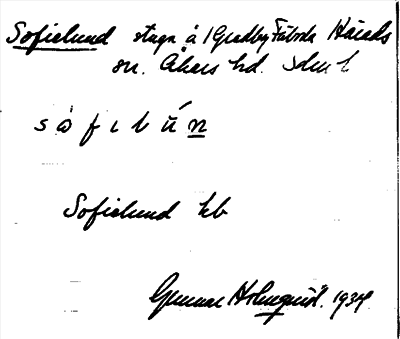 Sofielund stuga å 1 Gredby Fäbode Härads
sn. Åkers hd. Sdml
Sofielund kb
Gunnar Holmquist. 1934